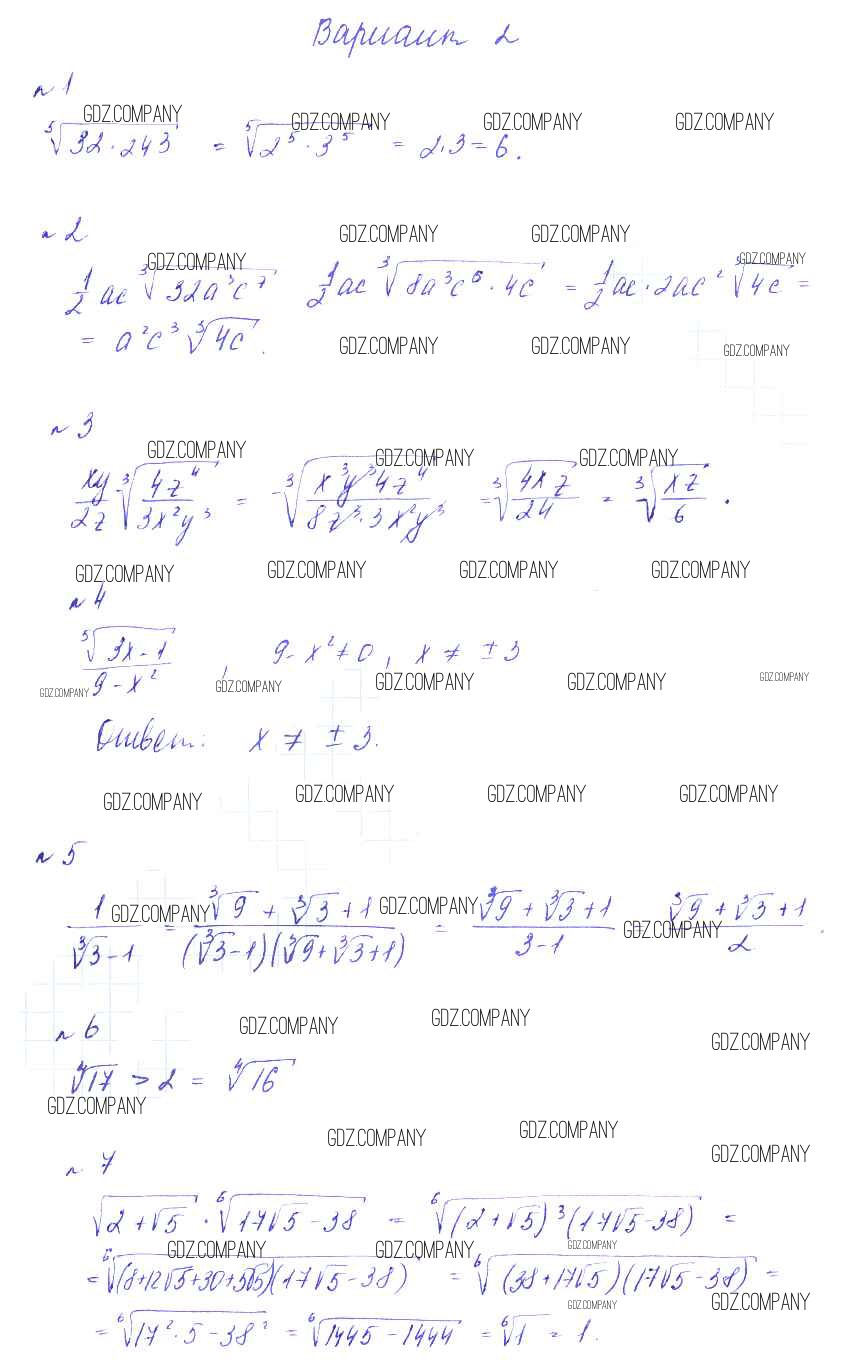 Вариант 2
n 1
GDZ.COMPANY GDZ.COMPANY GDZ.COMPANY GDZ.COMPANY
⁵√(32 · 243) = ⁵√(2⁵ · 3⁵) = 2·3 = 6.
n 2
GDZ.COMPANY GDZ.COMPANY
GDZ.COMPANY GDZ.COMPANY
1/2 ac ³√(32a³c⁷) 1/2 ac ³√(8a³c⁶ · 4c) = 1/2 ac · 2ac² ³√(4c) =
= a²c³ ³√(4c).
GDZ.COMPANY GDZ.COMPANY GDZ.COMPANY
n 3
GDZ.COMPANY GDZ.COMPANY GDZ.COMPANY
xy/2z ³√(4z⁴/3x²y³) = ³√(x³y³4z⁴/8z³·3x²y³) = ³√(4xz/24) = ³√(xz/6).
GDZ.COMPANY GDZ.COMPANY GDZ.COMPANY GDZ.COMPANY
n 4
⁵√(3x-1)/(9-x²), 9-x² ≠ 0, x ≠ ±3
GDZ.COMPANY GDZ.COMPANY GDZ.COMPANY GDZ.COMPANY GDZ.COMPANY
Ответ: x ≠ ±3.
GDZ.COMPANY GDZ.COMPANY GDZ.COMPANY GDZ.COMPANY
n 5
GDZ.COMPANY GDZ.COMPANY GDZ.COMPANY
1/(³√3-1) = (³√9+³√3+1)/((³√3-1)(³√9+³√3+1)) = (³√9+³√3+1)/(3-1) = (³√9+³√3+1)/2.
n 6
GDZ.COMPANY GDZ.COMPANY GDZ.COMPANY
⁴√17 > 2 = ⁴√16
GDZ.COMPANY
GDZ.COMPANY GDZ.COMPANY GDZ.COMPANY
n 7
√(2+√5) · ⁶√(17√5-38) = ⁶√((2+√5)³(17√5-38)) =
GDZ.COMPANY GDZ.COMPANY GDZ.COMPANY
= ⁶√((8+12√5+30+5√5)(17√5-38)) = ⁶√((38+17√5)(17√5-38)) =
GDZ.COMPANY GDZ.COMPANY
= ⁶√(17²·5-38²) = ⁶√(1445-1444) = ⁶√1 = 1.